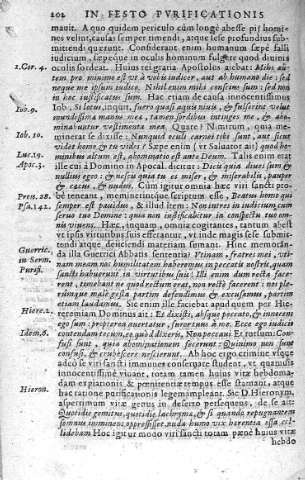 202 IN FESTO PVRIFICATIONIS
mauit. A quo quidem periculo cùm longè abesse pij homines
velint, causas semper timent, atque sese profundius submittendi
quærunt. Considerant enim humanum sæpè falli
iudicium, sæpè quòd in oculis hominum fulget quod diuinis
2. Cor. 4. oculis sordeat. Huius rei gratia Apostolus aiebat: Mihi autem
pro minimo est vt à vobis iudicer, aut ab humano die: sed
neque me ipsum iudico. Nihil enim mihi conscius sum: sed non
in hoc iustificatus sum. Hac etiam de causa innocentissimus
Iob. 9. Iob, Si lotus, inquit, fuero quasi aquis niuis, & fulserint velut
mundissima manus meæ, tamen sordibus intinges me, & abominabuntur
vestimenta mea. Quare? Nimirum, quia meminerat
Iob. 10. se dixisse: Nunquid oculi carnei tibi sunt, aut sicut
videt homo & tu vides? Sæpe enim (vt Saluator ait) quod hominibus
Luc. 16. altum est, abominatio est ante Deum. Talis enim erat
Apoc. 3. ille cui à Domino in Apocal. dicitur: Dicis quia diues sum &
nullius egeo: & nescis quia tu es miser, & miserabilis, pauper
& cæcus, & nudus. Cùm igitur omnia hæc viri sancti probè
Prou. 28. teneant, meminerintque scriptum esse, Beatus homo qui
Psa. 142. semper est pauidus, & illud item: Non intres in iudicium cum
seruo tuo Domine: quia non iustificabitur in conspectu tuo omnis
viuens. Hæc, inquam, omnia cogitantes, tantum abest
vt ipsis virtutibus suis efferantur, vt inde magis sese submittendi
atque deijciendi materiam sumant. Hinc memoranda
Guerric. illa Guerrici Abbatis sententia: Vtinam, fratres mei, vtinam
in Serm. eam nos humilitatem haberemus in peccatis nostris, quam
Purif. sancti habuerunt in virtutibus suis! Illi enim dum rectà facerent,
timebant ne quod rectum erat, non rectè facerent: nos plerumque
male gesta partim defendimus & excusamus, partim
etiam laudamus. Sic enim fuisse apud quempiam Hieremiam
Hiere. 2. Dominus ait: Et dixisti, absque peccato, & innocens
ego sum: propterea auertatur furor tuus à me. Ecce ego iudicio
Idem. 6. contendam tecum, eò quod dixeris, Non peccaui. Et rursum: Confusi
sunt, quia abominationem fecerunt: Quinimo non sunt
confusi, & erubescere nescierunt. Ab hoc ergo crimine vsque
adeò se viri sancti immunes conseruare student, vt quamuis
innocentissimè viuant, totam tamen huius vitæ hebdomadam
expiationis & pœnitentiæ tempus esse statuant, atque
Hieron. hac ratione purificationis legem impleant. Sic D. Hieronym.
asperrimum vitæ genus in deserto persequens, de se ait:
Quotidie gemitus, quotidie lachrymæ, & si quando repugnantem
somnus imminens oppressisset, nuda humo vix hærentia ossa collidebam.
Hoc igitur modo viri sancti totam penè huius vitæ
hebdo